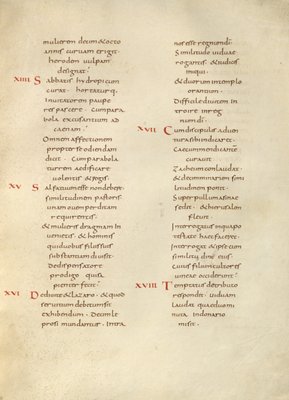 mulierem decem & octo
annis curuam eriget
herodem uulpem
designat.
XIIII Sabbatis hydropicum
curat. hortaturq.
Inuitatorem paupe
res pascere. Cumpara
bola excusantium ad
caenam.
Omnem affectionem
propter se odiendam
dicit. Cumparabola
turrem aedificare
uolentis & regis.
XV Sal fatuum esse non debere
similitudinem pastoris
unam ouem perditam
requirentis.
& mulieris dragmam In
uenientis & hominis
qui duobus filiis suis
substantiam diuisit.
De dispensatore
prodigo quia sa
pienter fecit.
XVI De diuite & lazaro. & quod
seruitium debetum sit
exhibendum. Decim le
prosi mundantur. Intra
nos esse regnum di.
Similitudo uiduae
rogantis & iudicis
iniqui.
& duorum in templo
orantium.
Difficile diuitem In
troire in reg
num di.
XVII Cum discipulis aduen
tura sibi indicaret.
Caecum mendicante
curauit.
Zacheum conlaudat
& decem mnarum simi
litudinem ponit.
Super pullum asinae
sedet. & hierusalem
fleuit.
Interrogatus in qua po
testate haec faceret.
Interrogat & ipse cum
eius
cuius filium cultores
uineae occiderunt.
XVIII Temptatus de tributo
respondet. uiduam
laudat quae duo mi
nuta in donario
misit.